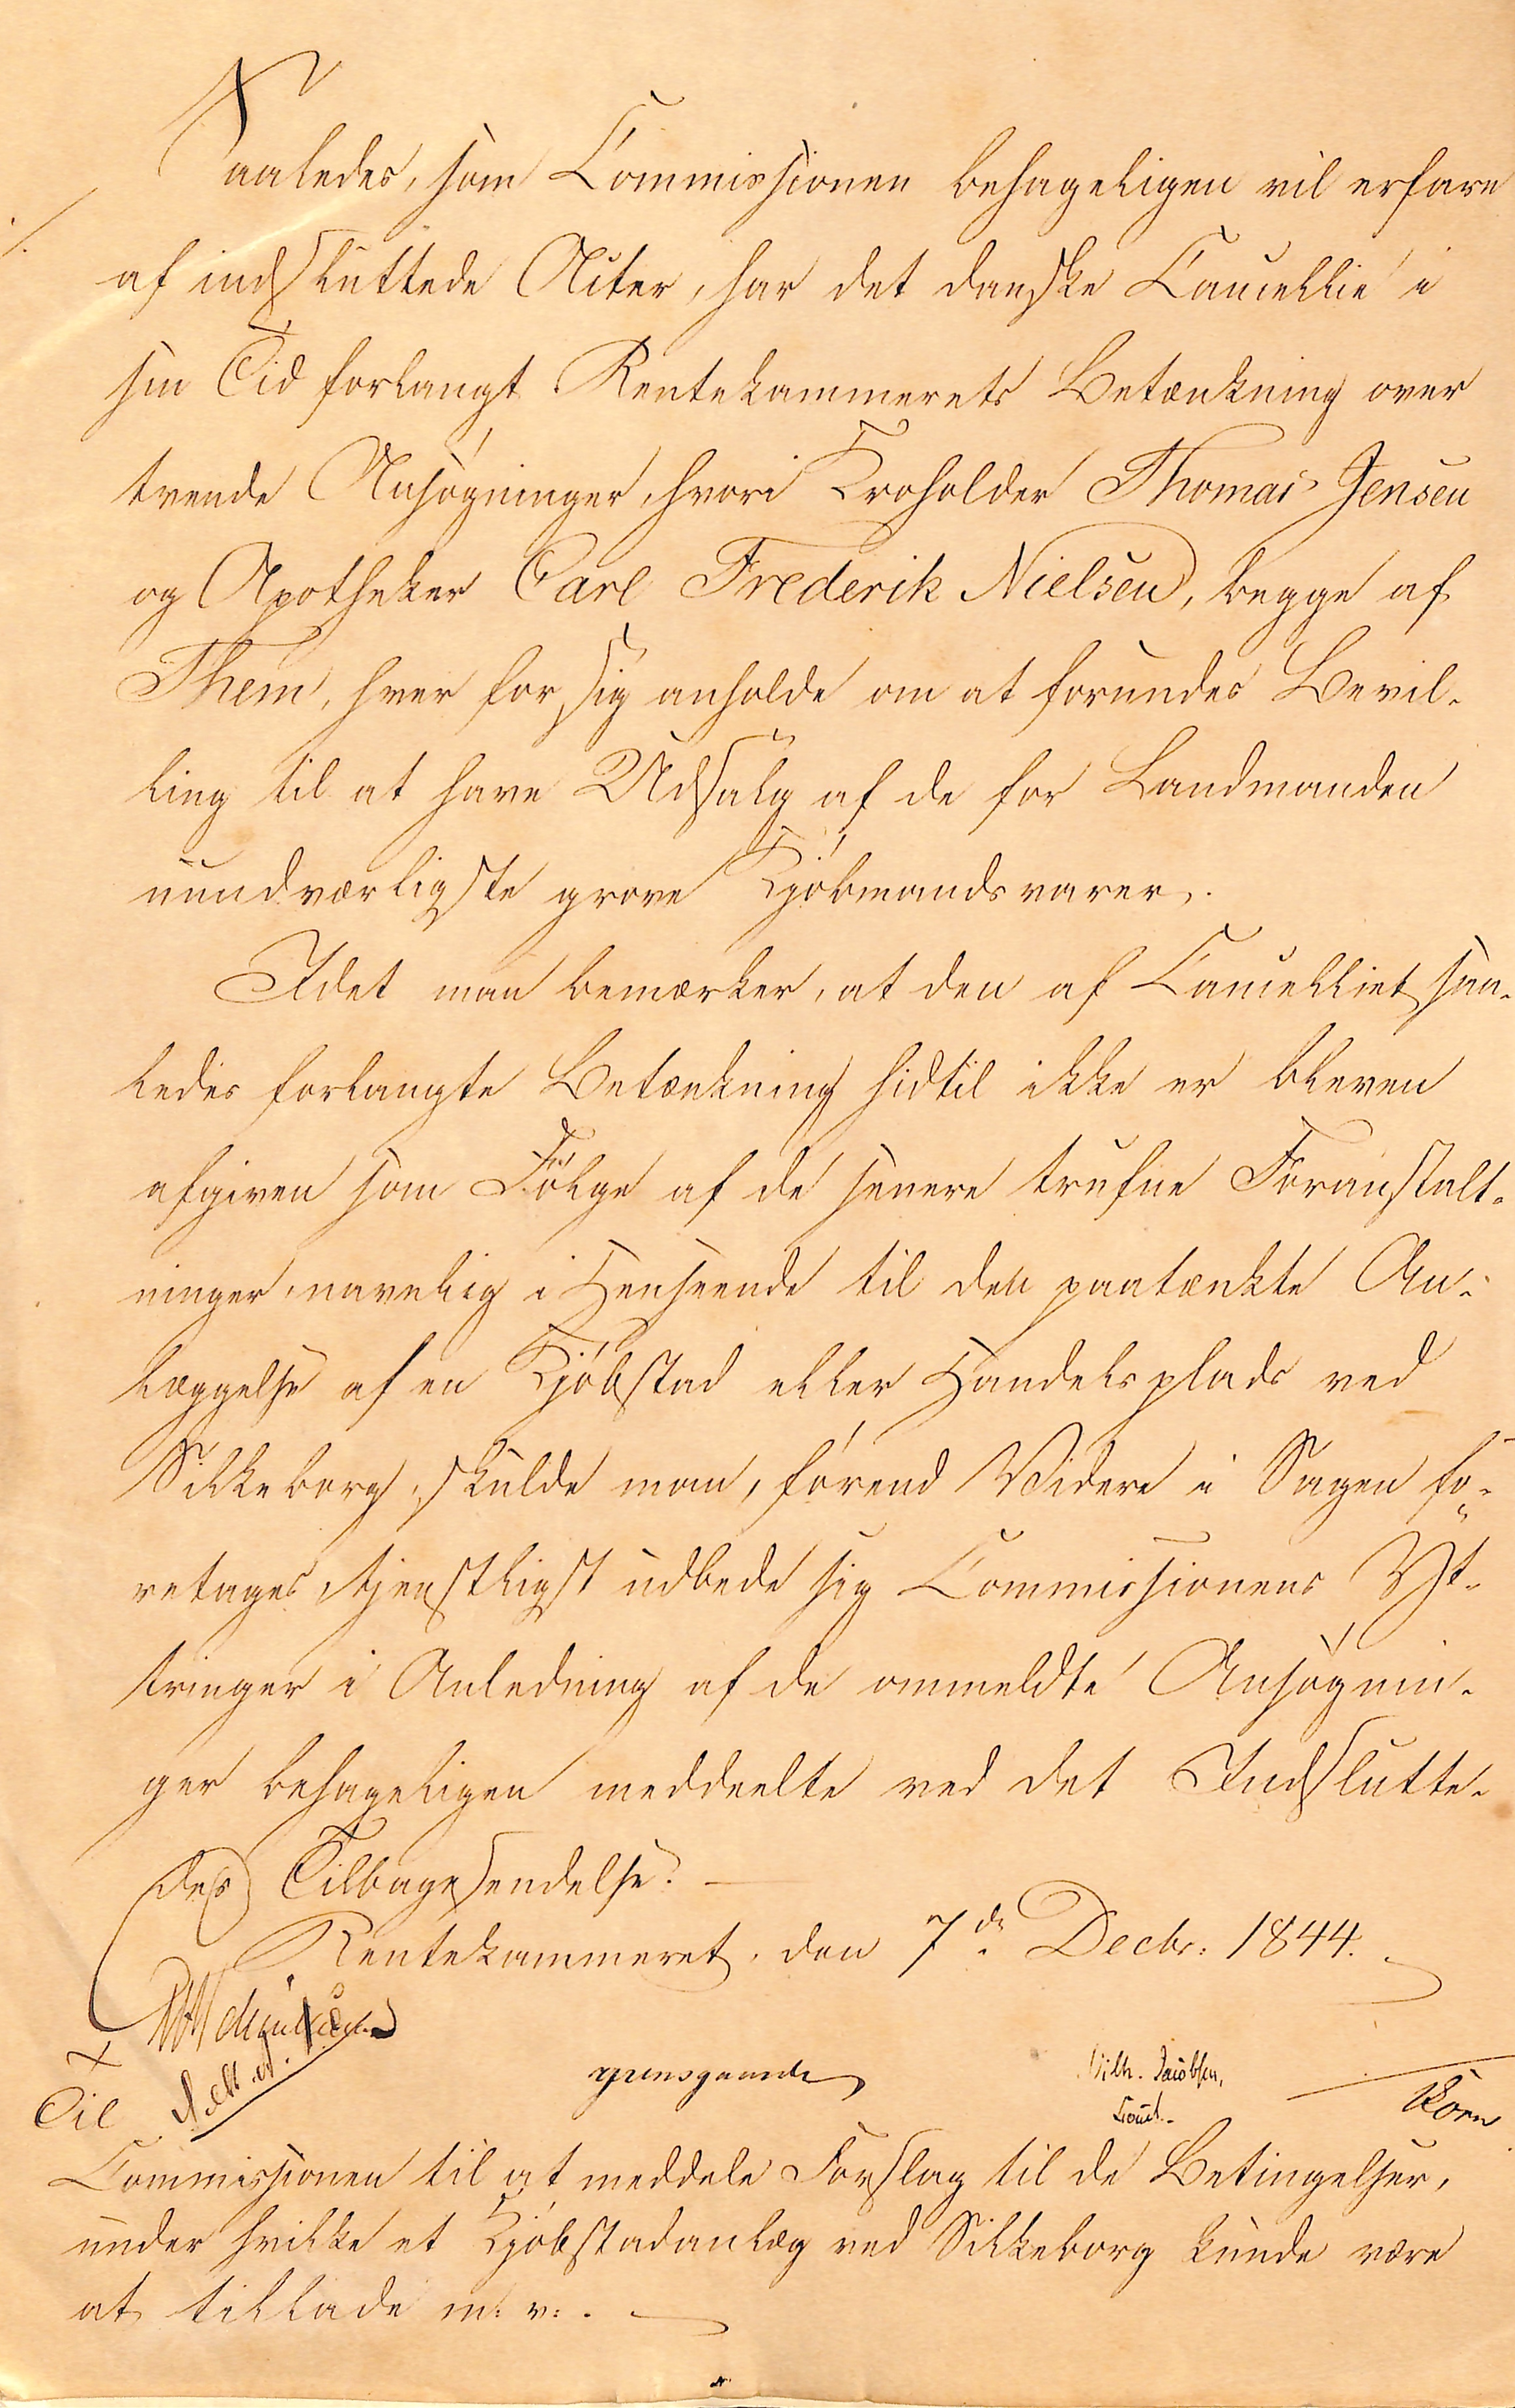 Saaledes, som Commissionen behageligen vil erfare
af indsluttede Acter, har det danske Cancellie i
sin Tid forlangt Rentekammerets Betænkning over
tvende Ansøgninger, hvori Kroholder Thomas Jensen
og Apotheker Carl Frederik Nielsen, begge af
Them, hver for sig anholde om at forundes Bevil-
ling til at have Udsalg af de for Landmanden
uundværligste grove Kjøbmandsvarer.
Idet man bemærker, at den af Cancelliet saa-
ledes forlangte Betænkning hidtil ikke er bleven
afgiven som Følge af de senere trufne Foranstalt-
ninger, navnlig i Henseende til den paatænkte An-
læggelse af en Kjøbstad eller Handelsplads ved
Silkeborg, skulde man, førend Videre i Sagen fo-
retages tjenstligst udbede sig Commissionens Yt-
tringer i Anledning af de ommeldte Ansøgnin-
ger behageligen meddeelte ved det Indslutte-
des Tilbagesendelse.
Rentekammeret, den 7de Decbr: 1844.
grensgaard
Vilh. Jacobsen,
Const.
Koen
Til
Commissionen til at meddele Forslag til de Betingelser,
under hvilke et Kjøbstadanlæg ved Silkeborg kunde være
at tillade m: v:.